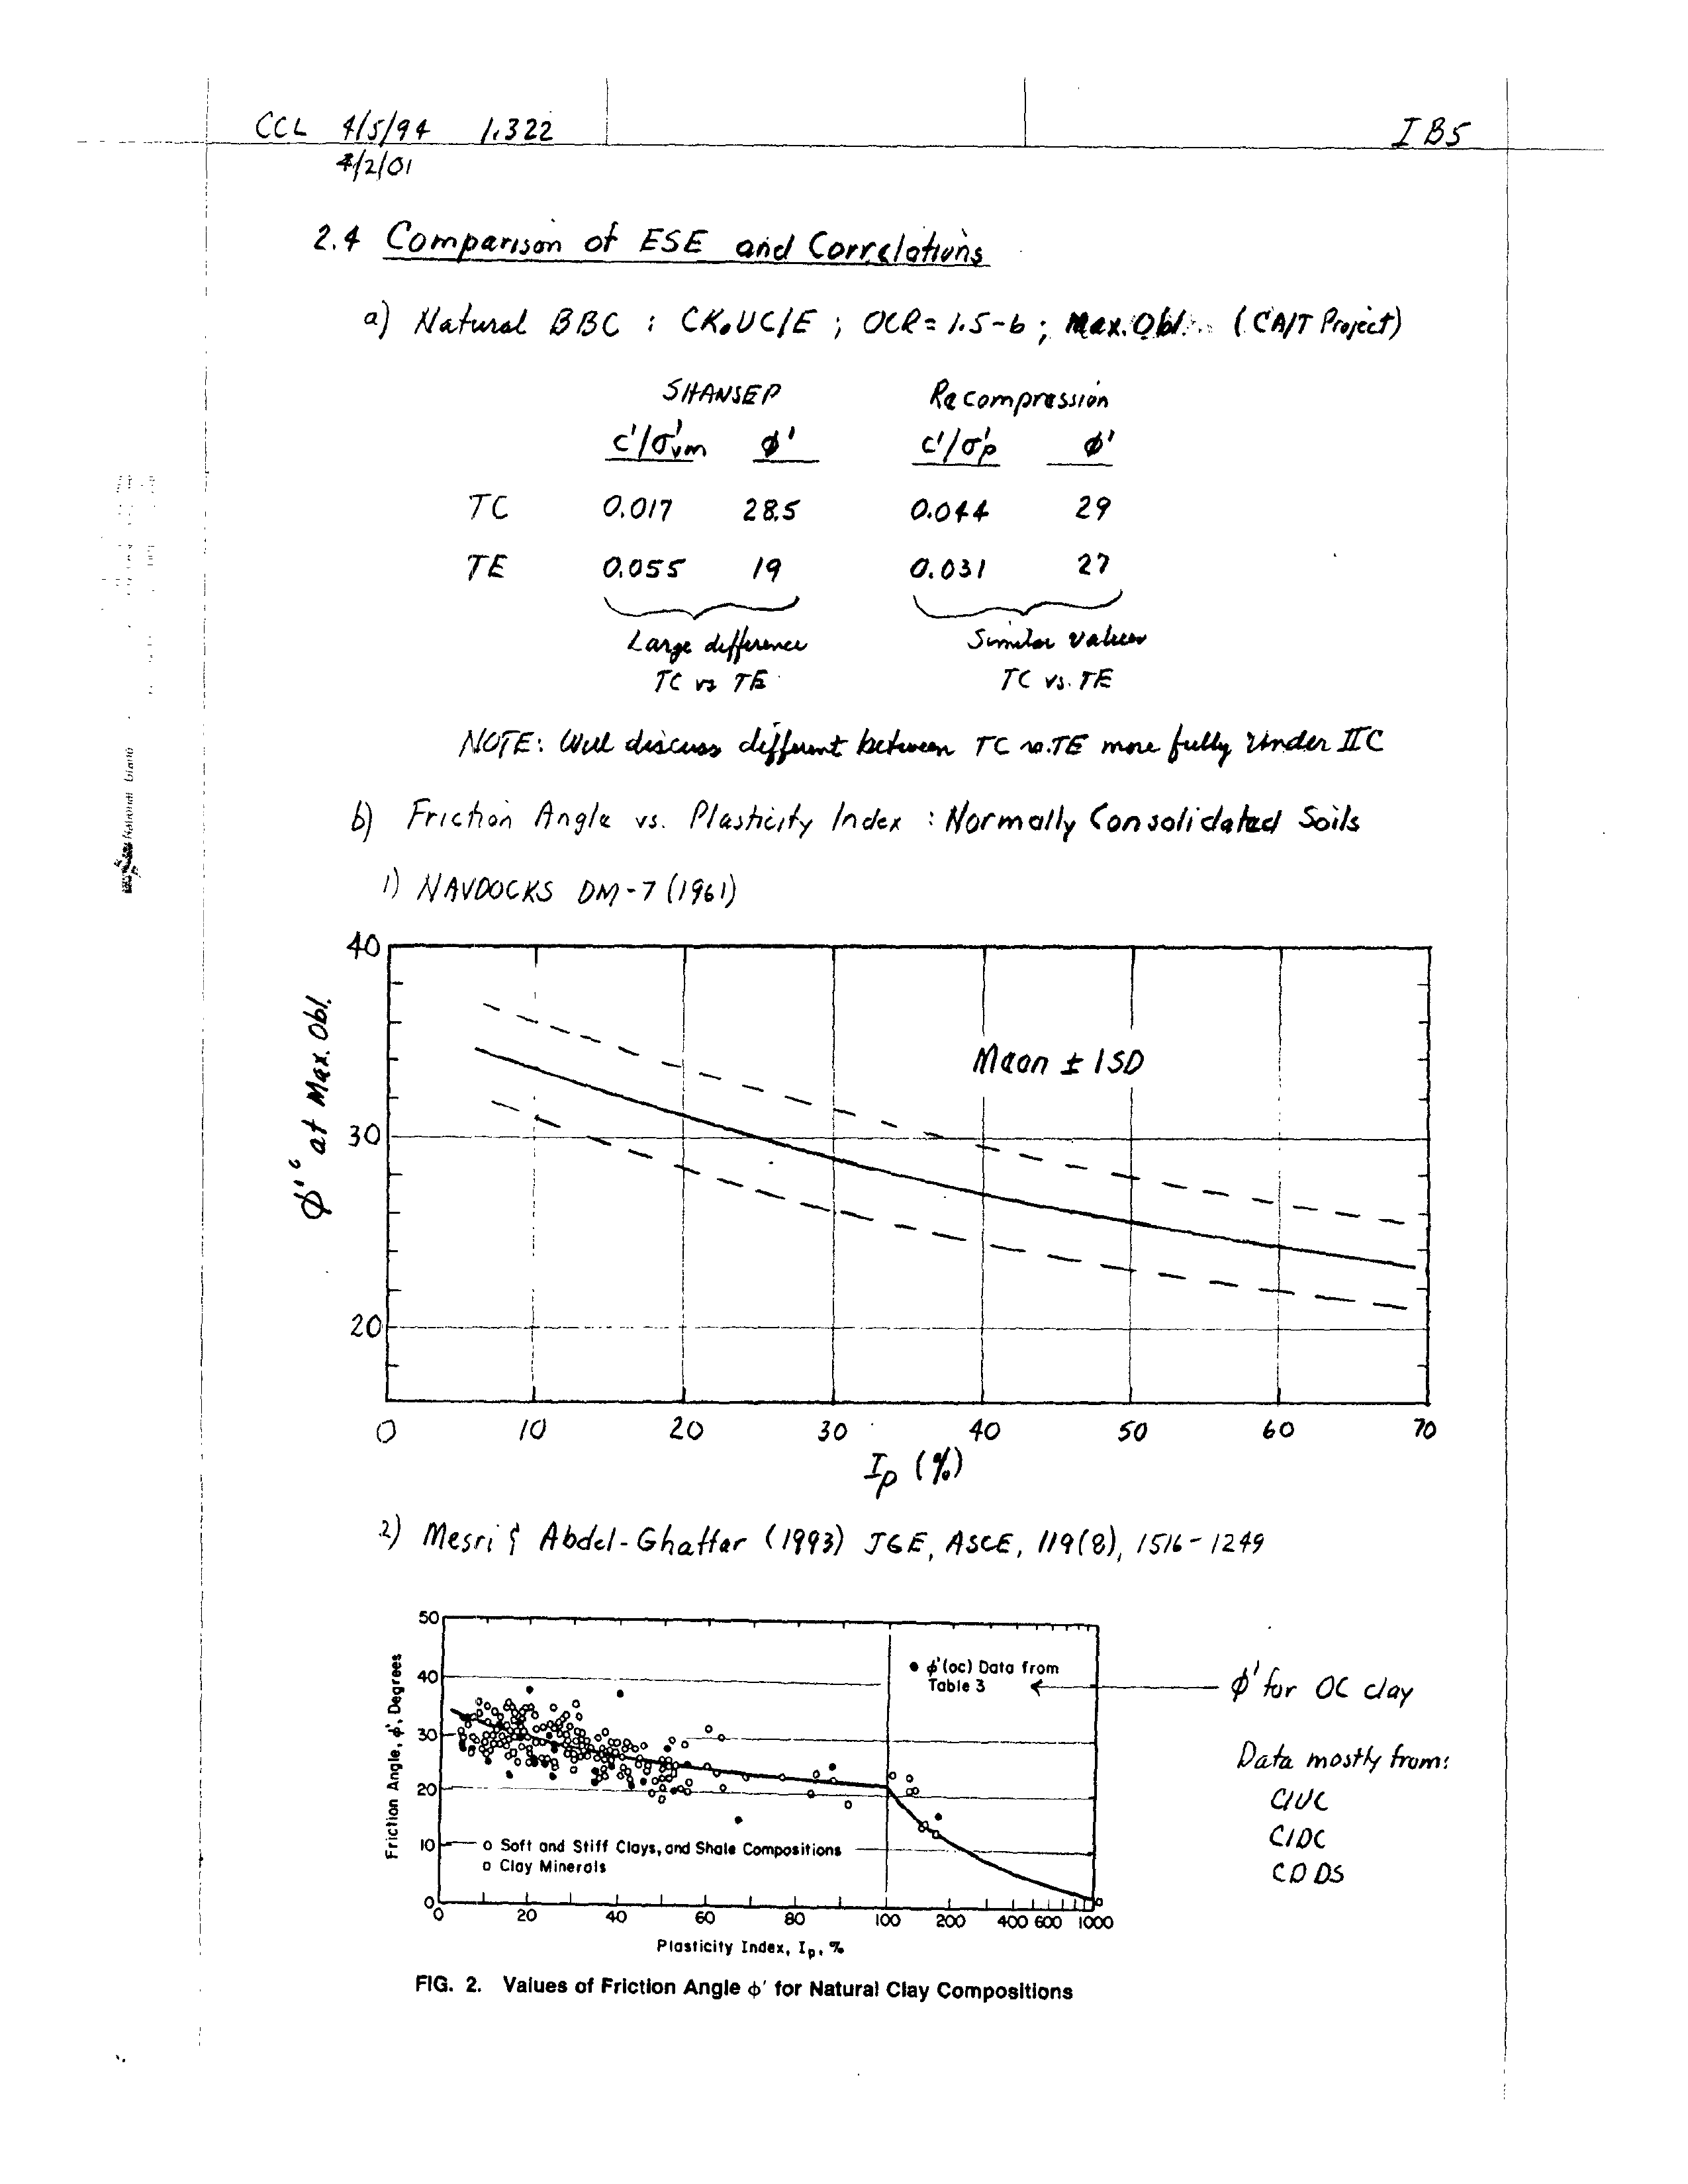 CCL 4/5/94 1.322 IB5
4/2/01
2.4 Comparison of ESE and Correlations
a) Natural BBC : CK₀UC/E ; OCR = 1.5-6 ; Max. Obl. (CA/T Project)
SHANSEP Recompression
c'/σ'vm φ' c'/σ'p φ'
TC 0.017 28.5 0.044 29
TE 0.055 19 0.031 27
Large difference Similar values
TC vs TE TC vs. TE
NOTE: Will discuss different between TC vs. TE more fully under IIC
b) Friction Angle vs. Plasticity Index : Normally Consolidated Soils
1) NAVDOCKS DM-7 (1961)
40
φ'° at Max. Obl.
Mean ± 1SD
30
20
0 10 20 30 40 50 60 70
Ip (%)
2) Mesri & Abdel-Ghaffar (1993) JGE, ASCE, 119(8), 1516-1249
50
40
30
20
10
0
Friction Angle, φ', Degrees
• φ'(oc) Data from
Table 3
φ' for OC clay
Data mostly from:
CIUC
CIDC
CDDS
o Soft and Stiff Clays, and Shale Compositions
□ Clay Minerals
0 20 40 60 80 100 200 400 600 1000
Plasticity Index, Ip, %
FIG. 2. Values of Friction Angle φ' for Natural Clay Compositions